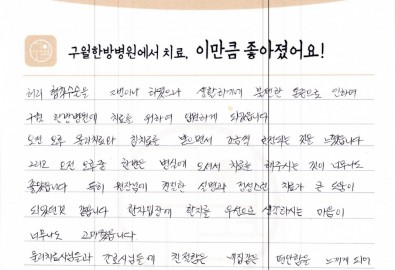 구월한방병원에서 치료, 이만큼 좋아졌어요!
허리 협착수술을 2번이나 하였으나 생활하기에 불편한 부분으로 인하여
구월 한방병원에 치료를 위하여 입원하게 되었습니다
오전 오후 물리치료와 침치료를 받으면서 조금씩 호전되는 것을 느꼈습니다
그리고 오전 오후중 한번은 병실에 오셔서 치료를 해주시는 것이 너무나도
좋았습니다 특히 원장님의 친절한 설명과 정성스런 치료가 큰 도움이
되었던것 같습니다 환자입장에 환자를 우선으로 생각하시는 마음이
너무나도 고마웠습니다
물리치료사님들과 간호사님들에 친절함은 편안함을 느끼게 되어